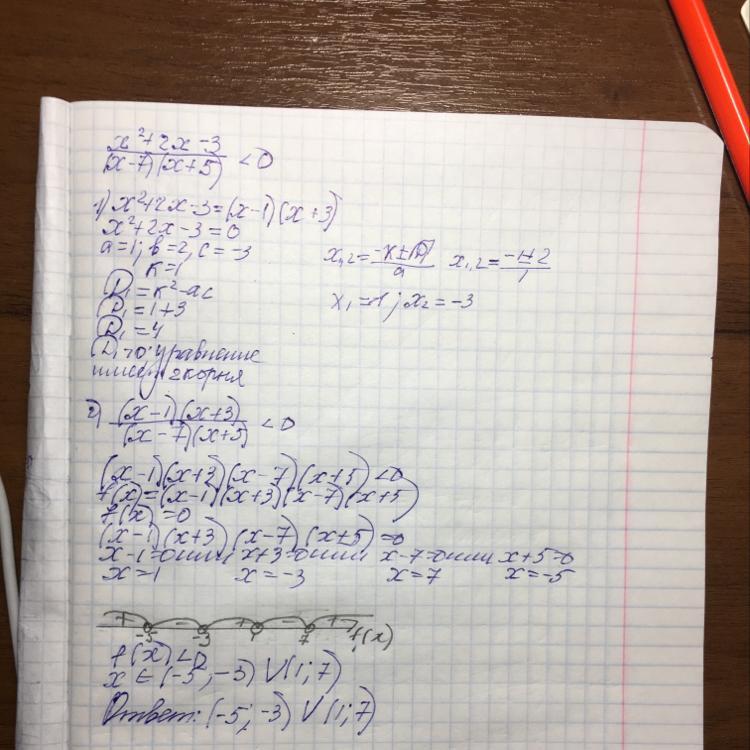 x²+2x-3
(x-7)(x+5) <0
1) x²+2x-3=(x-1)(x+3)
x²+2x-3=0
a=1; в=2, c=-3
к=1
D₁=к²-ac
D₁=1+3
D₁=4
D₁>0: уравнение
имеет 2 корня
x₁,₂=-к±√D₁ / a x₁,₂=-1±2 / 1
x₁=1; x₂=-3
2) (x-1)(x+3)
(x-7)(x+5) <0
(x-1)(x+3)(x-7)(x+5)<0
f(x)=(x-1)(x+3)(x-7)(x+5)
f(x)=0
(x-1)(x+3)(x-7)(x+5)=0
x-1=0 или x+3=0 или x-7=0 или x+5=0
x=1 x=-3 x=7 x=-5
+ - + - +
-5 -3 1 7 f(x)
f(x)<0
x∈(-5;-3)∪(1;7)
Ответ: (-5;-3)∪(1;7)